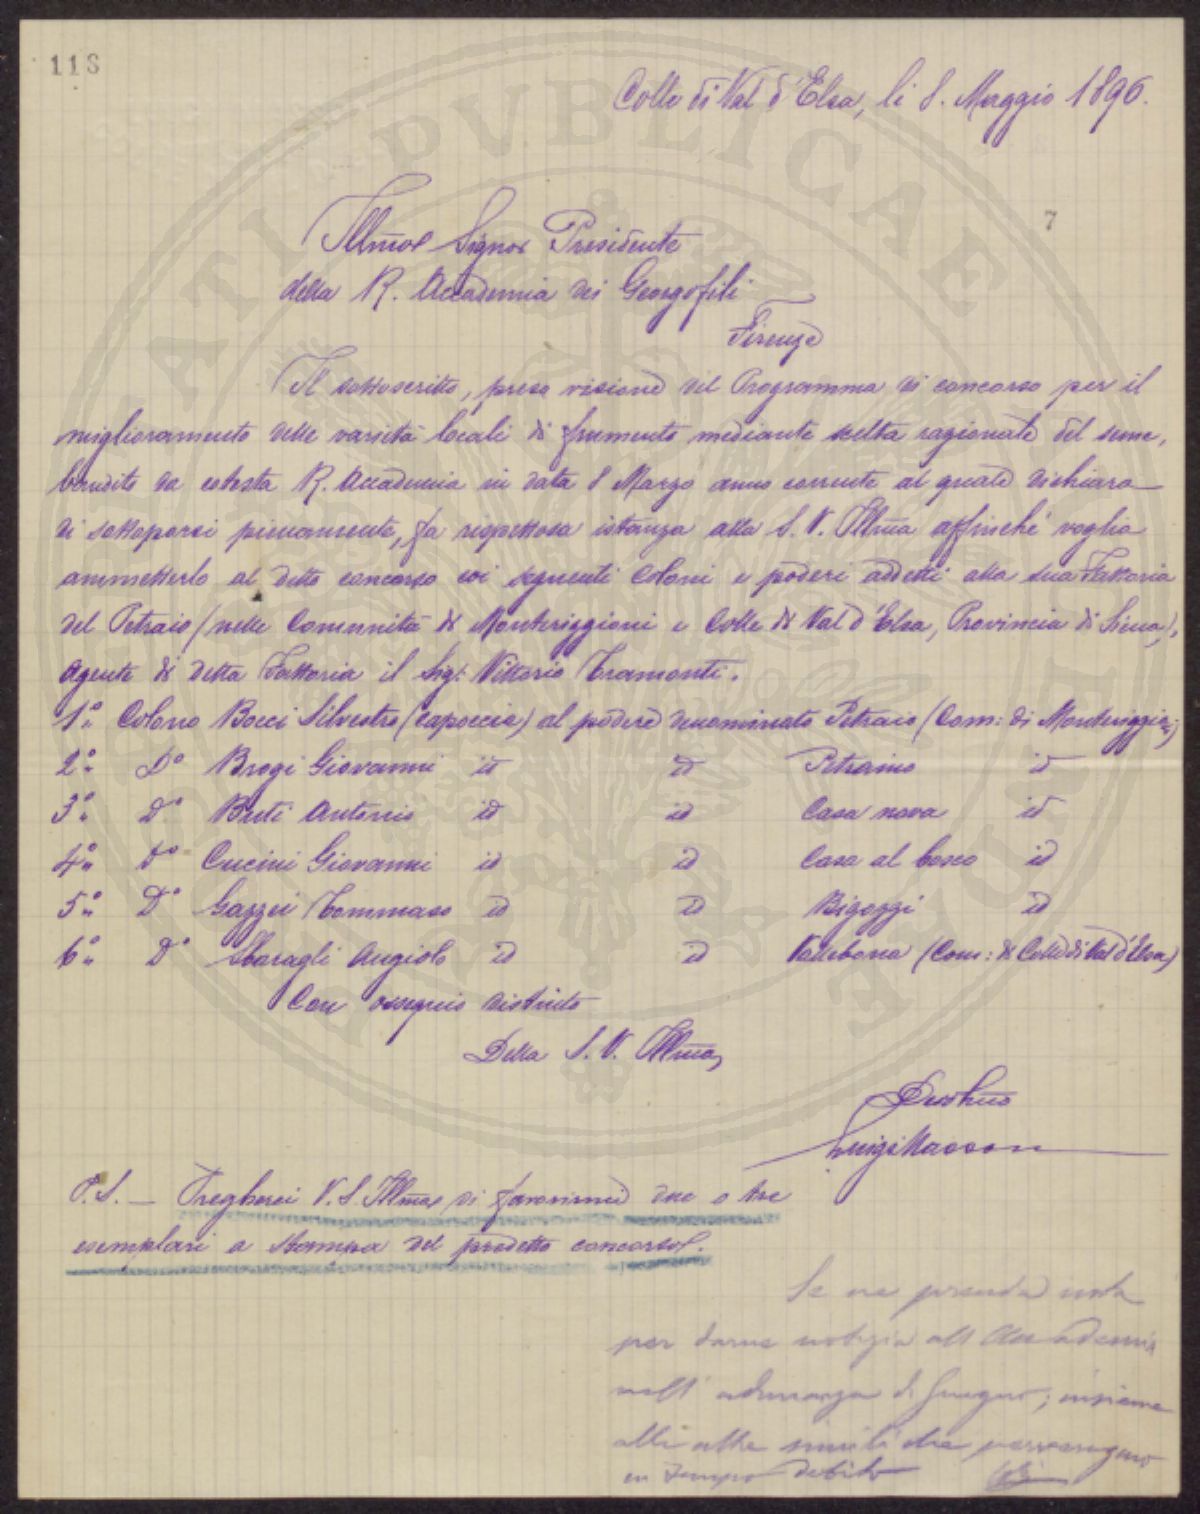 118
Colle di Val d'Elsa, li 8. Maggio 1896.
7
Illmo Signor Presidente
della R. Accademia dei Georgofili
Firenze
Il sottoscritto, presa visione del Programma di concorso per il
miglioramento delle varietà locali di frumento mediante scelta razionale del seme,
bandito da cotesta R. Accademia in data 8 Marzo anno corrente al quale dichiara
di sottoporsi pienamente, fa rispettosa istanza alla S. V. Illma affinchè voglia
ammetterlo al detto concorso coi seguenti Coloni e poderi addetti alla sua Fattoria
del Petraio (nelle Comunità di Monteriggioni e Colle di Val d'Elsa, Provincia di Siena),
Agente di detta Fattoria il Sig: Vittorio Tramonti.
1º Colono Bocci Silvestro (capoccia) al podere denominato Petraio (Com: di Monteriggio:)
2º Dº Brogi Giovanni id id Petraino id
3º Dº Buti Antonio id id Casa nova id
4º Dº Cucini Giovanni id id Casa al bosco id
5º Dº Gazzei Tommaso id id Bigozzi id
6º Dº Sbaragli Angiolo id id Vallebona (Com: di Colle di Val d'Elsa)
Con ossequio distinto
Della S. V. Illma
Devotmo
Luigi Masson
P.S. — Pregherei V. S. Illma di favorirmi due o tre
esemplari a stampa del predetto concorso.
Se ne prenda nota
per darne notizia all'Accademia
nell'adunanza di Giugno; insieme
alle altre simili che perverranno
in tempo debito